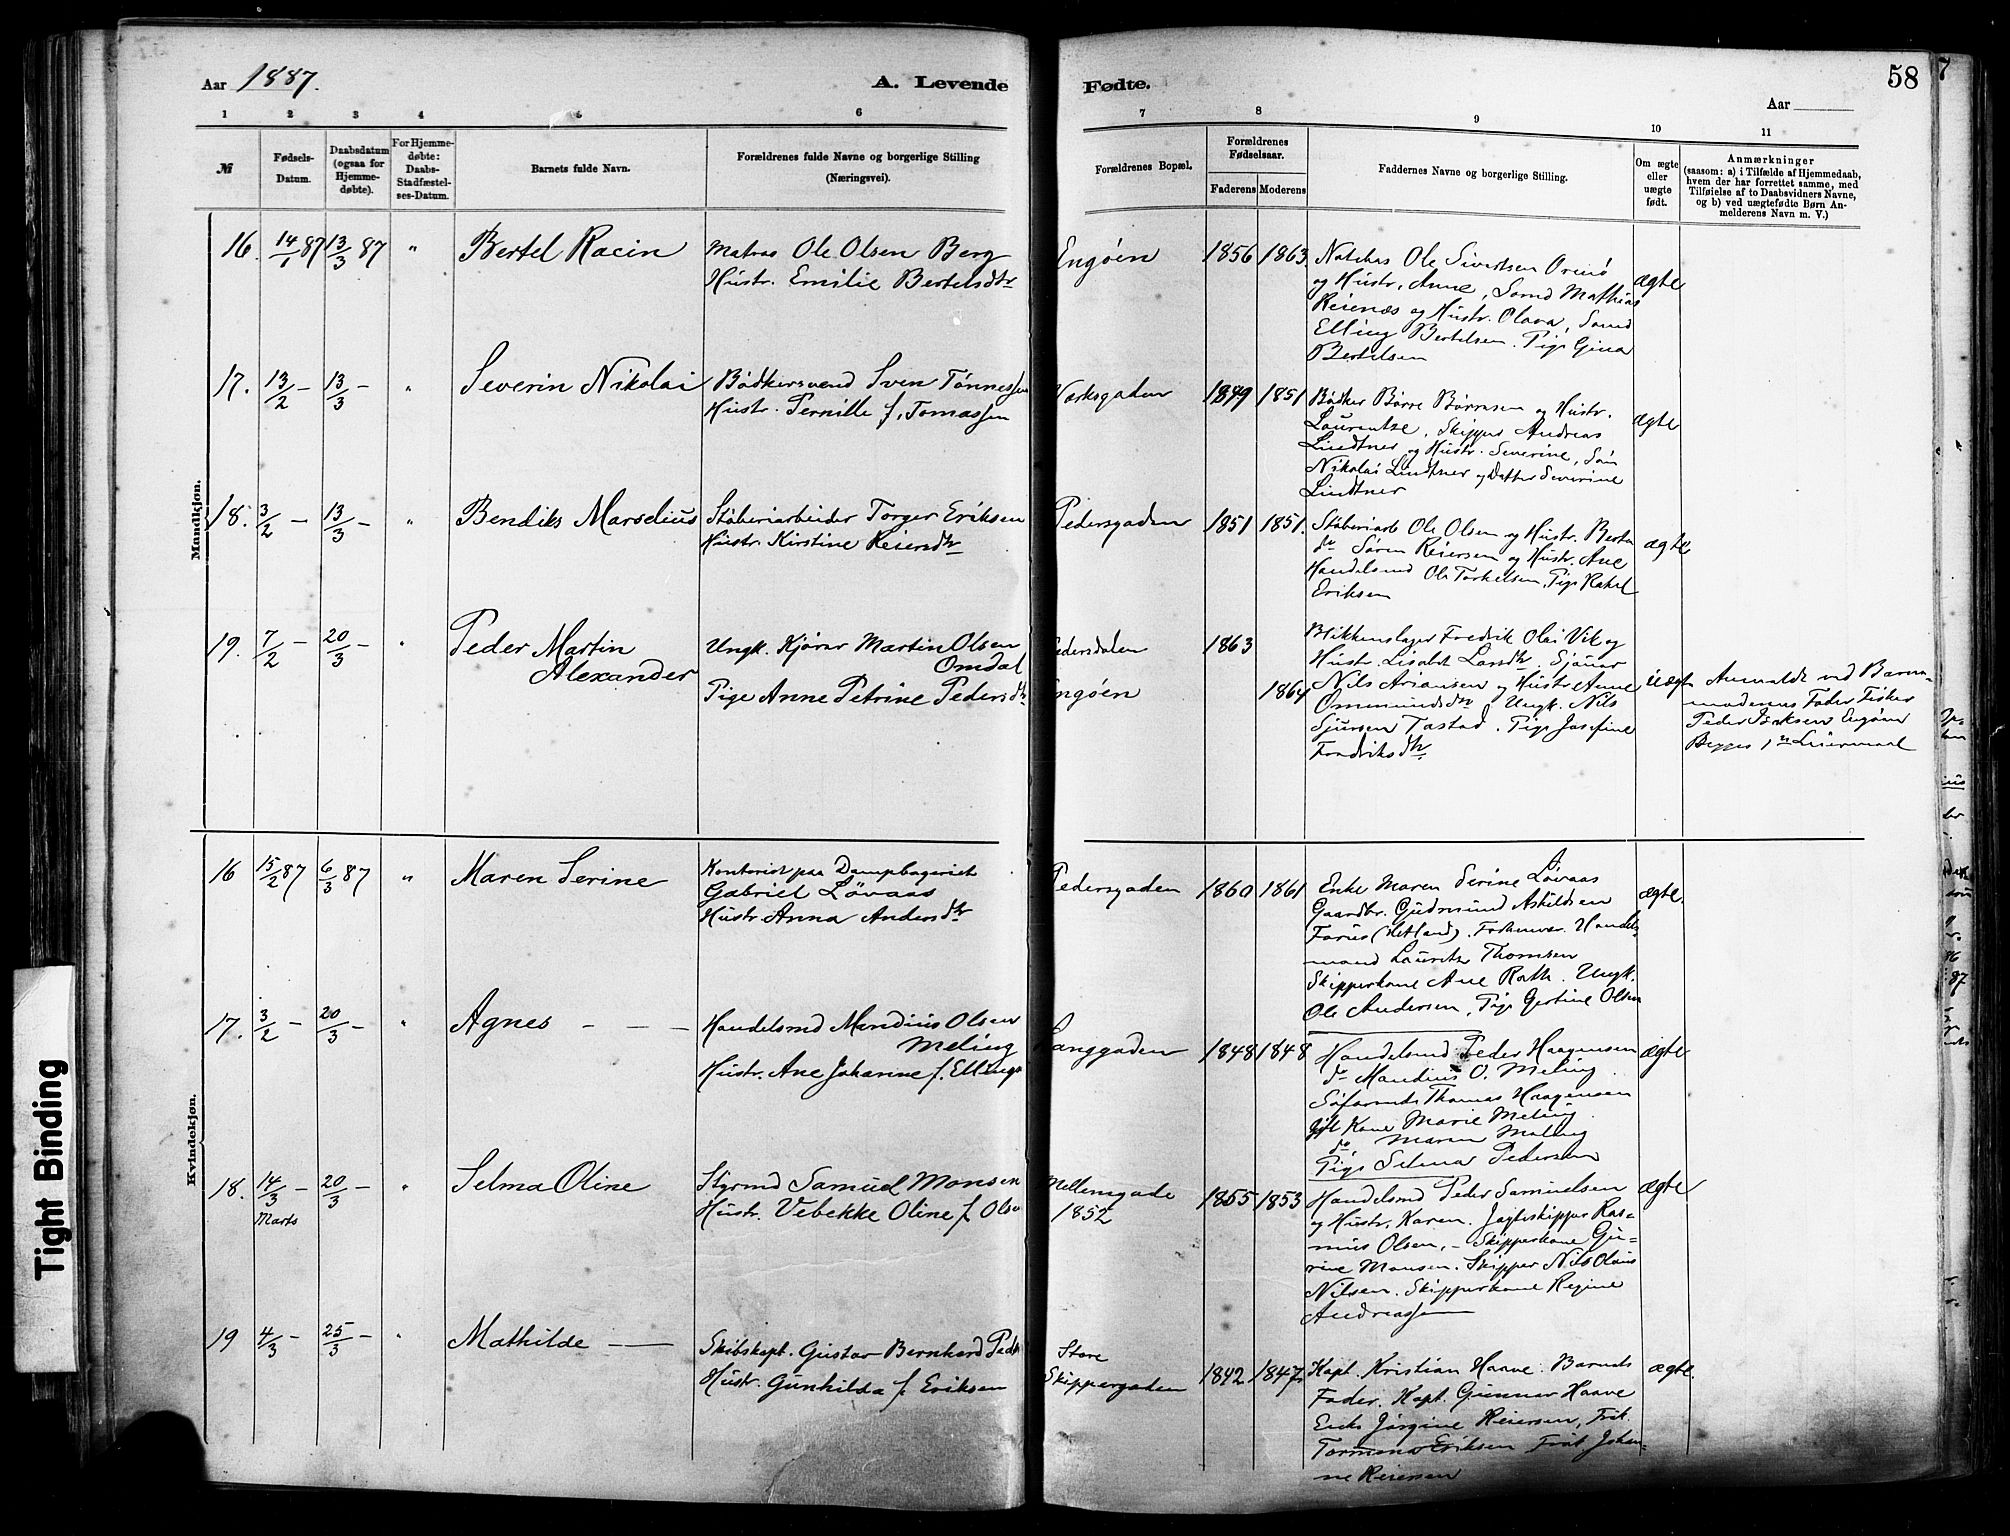 Aar 1887.
A. Levende
Fødte.
58
Aar
1 2 3 4 5 6 7 8 9 10 11
№
Fødsels-
Datum.
Daabsdatum
(ogsaa for
Hjemme-
døbte).
For Hjemme-
døbte:
Daabs-
Stadfæstel-
ses-Datum.
Barnets fulde Navn.
Forældrenes fulde Navne og borgerlige Stilling
(Næringsvei).
Forældrenes Bopæl.
Forældrenes
Fødselsaar.
Faderens Moderens
Faddernes Navne og borgerlige Stilling.
Om ægte
eller
uægte
født.
Anmærkninger
(saasom: a) i Tilfælde af Hjemmedaab,
hvem der har forrettet samme, med
Tilføielse af to Daabsvidners Navne,
og b) ved uægtefødte Børn An-
melderens Navn m. V.)
Mandkjøn.
16. 14/1 87 13/3 87 "
Bertel Racin
Matros Ole Olsen Berg
Hustr. Emilie Bertelsdtr
Engøen
1856 1863.
Ole Sivertsen
og Hustr. Anne, Mathias
Reienæs og Hustr. Olava,
Elling Bertelsen. Pige Gina
Bertelsen
ægte
17. 13/2 – 13/3 – "
Severin Nikolai
Bødkersvend Sven Tønnessen
Hustr. Pernille f. Tomassen
Værksgaden
1849 1851
Bødker Børre Børresen og Hustr.
Laurentze, Skipper Andreas
Lindtner og Hustr. Severine, Søn
Nikolai Lindtner og Datter Severine
Lindtner
ægte
18. 3/2 – 13/3 – "
Bendiks Marselius
Støberiarbeider Torger Eriksen
Hustr. Kirstine Reiersdtr
Pedersgaden
1851 1851.
Støberiarb Ole Olsen og Hustr. Berta
do Søren Reiersen og Hustr. Ane
Handelsmd Ole Torkelsen, Pige Rakel
Eriksen
ægte
19. 7/2 – 20/3 – "
Peder Martin
Alexander
Ungk. Kjører Martin Olsen
Omdal
Pige Anne Petrine Pedersdtr
Pedersdalen
Engøen
1863
1864
Blikkenslager Fredrik Olai Vik og
Hustr. Lisabet Larsdtr. Sjøuer
Nils Ariansen og Hustr Anne
Ommundsdtr. Ungk. Nils
Sjursen Tastad. Pige Josefine
Fredriksdtr.
Uægt
Anmeldt ved Barne-
moderens Fader Fisker
Peder Engøen
Begges 1ste Leiermaal
Kvindekjøn.
16 15/2 87 6/3 87 "
Maren Serine
Kontorist paa Dampbageriet
Gabriel Løvaas
Hustr Anna Andersdtr
Pedersgaden
1860 1861
Enke Maren Serine Løvaas
Gaardbr. Gudmund Askildsen
Forus (Hetland). Handels-
mand Lauritz Thomsen
Skipperkone Ane Rath. Ungk.
Ole Andersen, Pige Gertine Olsen
ægte.
17. 3/2 – 20/3 – "
Agnes – – –
Handelsmd Mandius Olsen
Meling
Hustr. Ane Johanne f. Ellings
Langgaden
1848 1848
Handelsmd Peder Haagensen
do Mandius O. Meling
Thomas Haagensen
Gift Kone Marie Meling
do Maren Meling
Pige Selma Pedersen
ægte
18. 14/3 – 20/3 – "
Marts
Selma Oline
Styrmd Samuel Monsen
Hustr. Vebekke Oline f. Olsen
Mellemgade
1852
1855 1853
Handelsmd Peder Samuelsen
og Hustr. Karen. Jagteskipper Ras-
mus Olsen, – Skipperkone Gu-
rine Monsen. Skipper Nils Olaus
Nilsen. Skipperkone Regine
Andreassen
ægte
19 4/3 – 25/3 – "
Mathilde
Skibskapt. Gustav Bernhard
Hustr. Gunhilda f. Eriksen
Store
Skippergaden
1842 1847.
Kapt. Kristian Haave. Barnets
Fader. Kapt. Gunnar Haave
Enke Jørgine Reiersen, Frk.
Eriksen Frøk Johan-
ne Reiersen
ægte.
Tight Binding